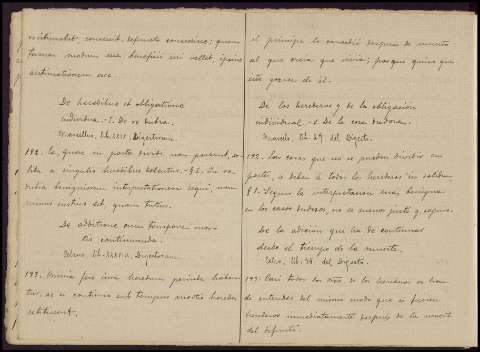 De heredibus et obligatione
individua. - §. De re dubia.
Marcellus, lib. XXIX. Digestorum.
192. Ea quae in partes dividi non possunt, so-
lida a singulis heredibus debentur. - §1. In re
dubia benigniorem interpretationem sequi, non
minus justius est, quam tutius.
De additione cum tempore mor-
tis continuanda.
Celsus, lib. XXXVIII. Digestorum.
193. Omnia fere jura heredum perinde haben-
tur, ac si continuo sub tempus mortis heredes
extitissent.
el príncipe la concedió después de muerto
al que creía que vivía; porque quiso que
éste gozase de él.
De los herederos y de la obligación
individual. - §. De la cosa dudosa.
Marcelo, lib. 29. del Digesto.
192. Las cosas que no se pueden dividir en
partes, se deben á todos los herederos in solidum.
§1. Seguir la interpretación más benigna
en los casos dudosos, no es menos justo q. seguro.
De la adición que ha de continuar
desde el tiempo de la muerte.
Celso, lib. 38. del Digesto.
193. Casi todos los dros. de los herederos se han
de entender del mismo modo que si fueran
herederos inmediatamente después de la muerte
del difunto.